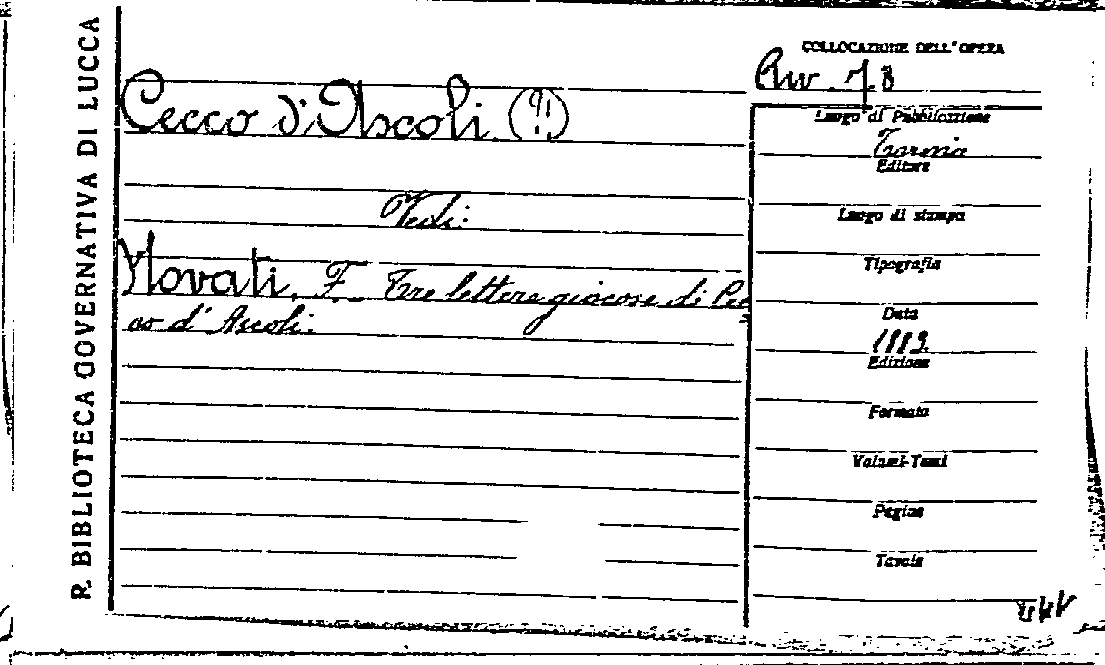 R. BIBLIOTECA GOVERNATIVA DI LUCCA
Cecco d'Ascoli (?!)
Vedi:
Novati, F. Tre lettere giocose di Cec
co d'Ascoli.
COLLOCAZIONE DELL'OPERA
Luogo di Pubblicazione
Torino
Editore
Luogo di stampa
Tipografia
Data
Edizione
Formato
Volumi-Tomi
Pagine
Tavole